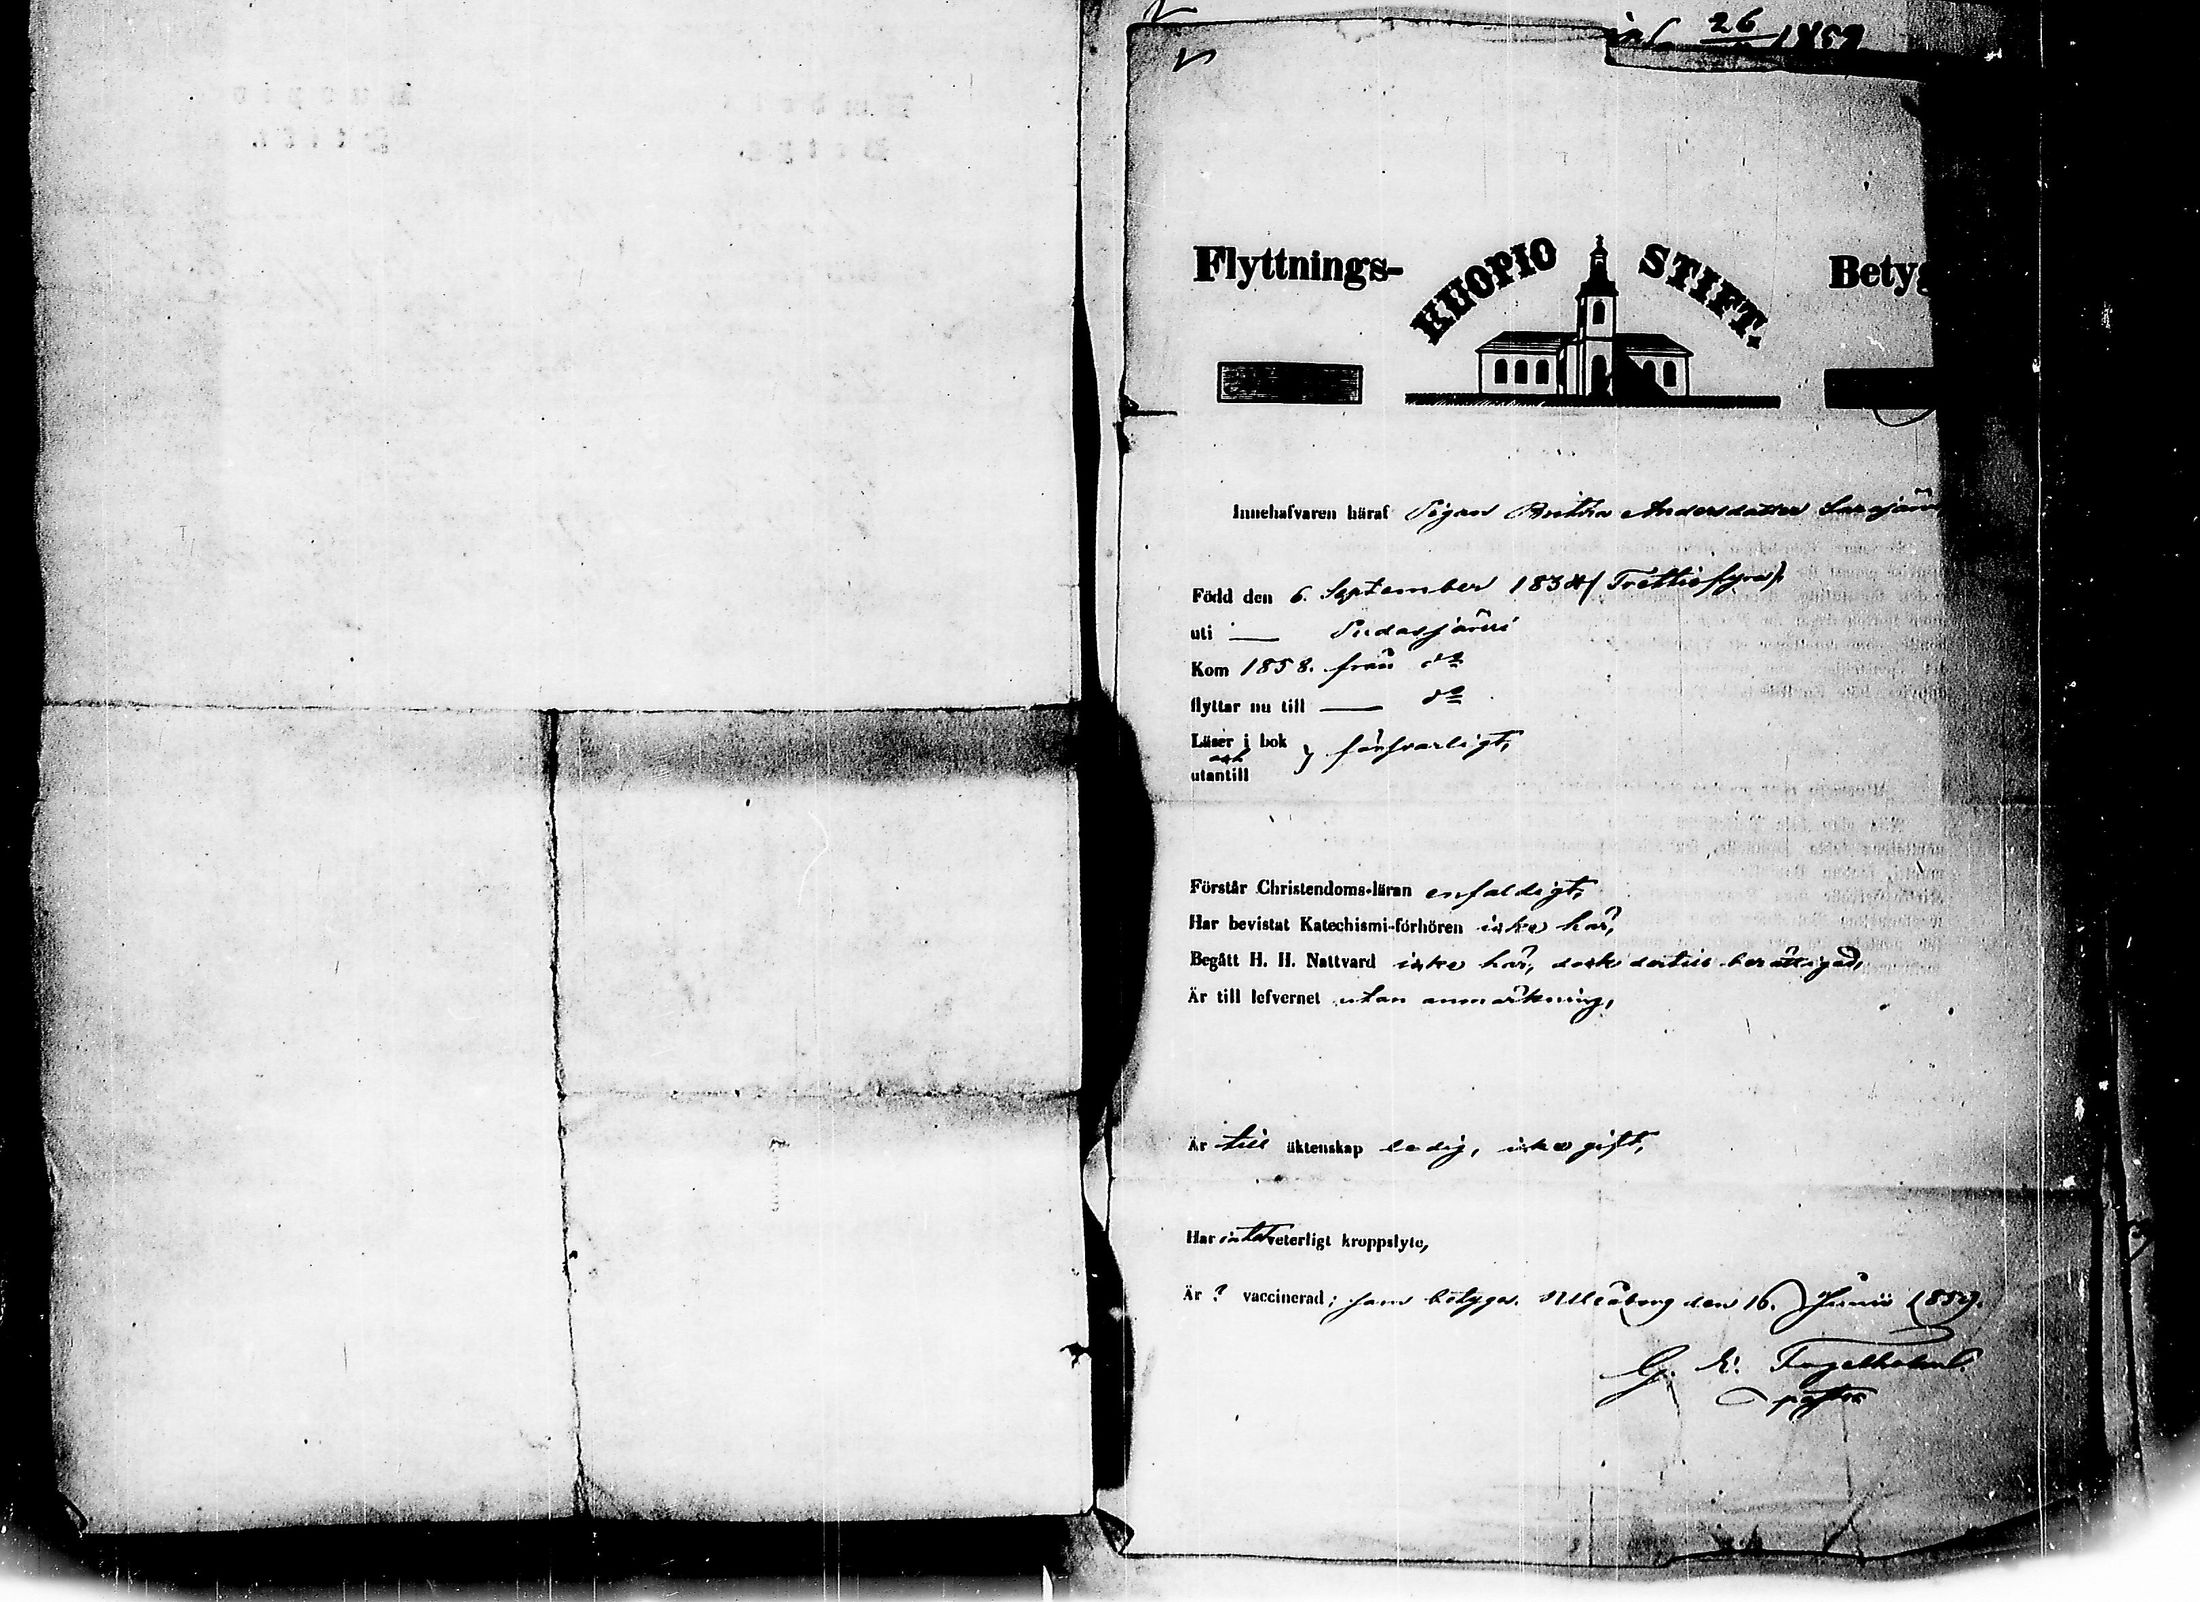 inl. 26/ 1859
Flyttnings- KUOPIO STIFT. Betyg
Innehafvaren häraf Pigan Britha Andersdatter Sarajärvi
Född den 6. September 1834 (Trettiofyra).
uti — Pudasjärvi
Kom 1858. från do
flyttar nu till — do
Läser i bok } försvarligt,
och
utantill
Förstår Christendoms-läran enfaldigt,
Har bevistat Katechismi-förhören icke här,
Begått H. H. Nattvard icke här, dock dertill berättigad,
Är till lefvernet utan anmärkning,
Är till äktenskap ledig, icke gift,
Har intet veterligt kroppslyte,
Är ? vaccinerad; som betygar. Uleåborg den 16. Junii 1859.
G. E. Fogelholm.
pastor